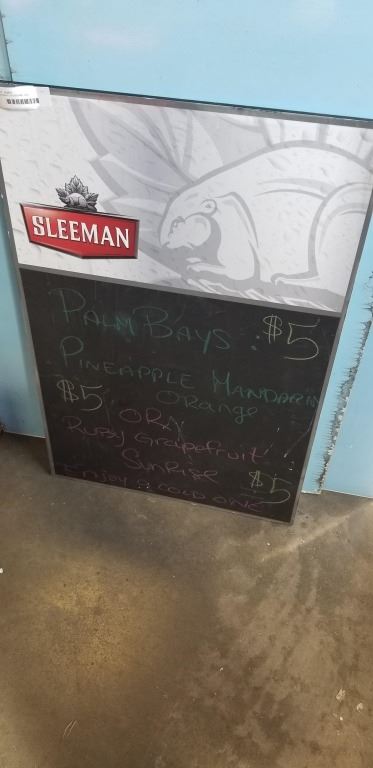 SLEEMAN
PALM BAYS : $5
PINEAPPLE MANDARIN
ORange
$5
ORA
RUBY GRapefruit
SunRise
$5
ENJOY A COLD ONE